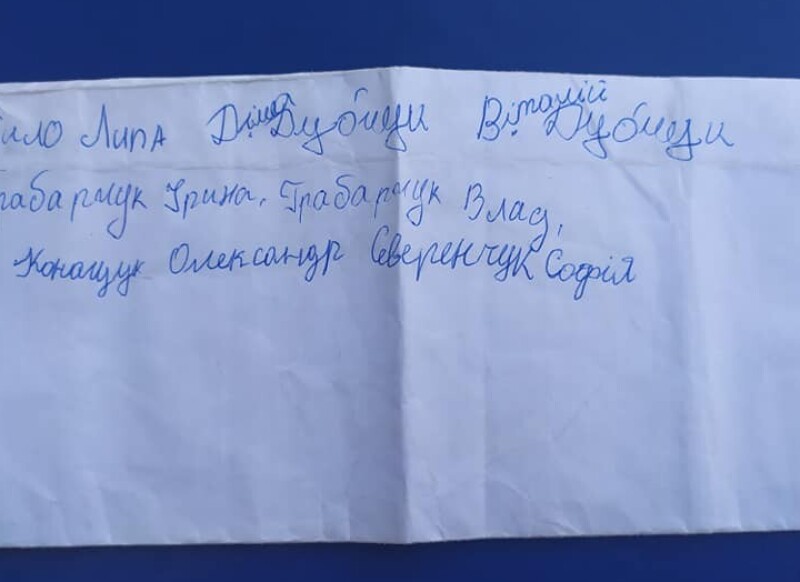 Липа Діма Дубчези Віталій Дубчези
Грабарчук Ірина, Грабарчук Влад,
Конащук Олександр Северенчук Софія